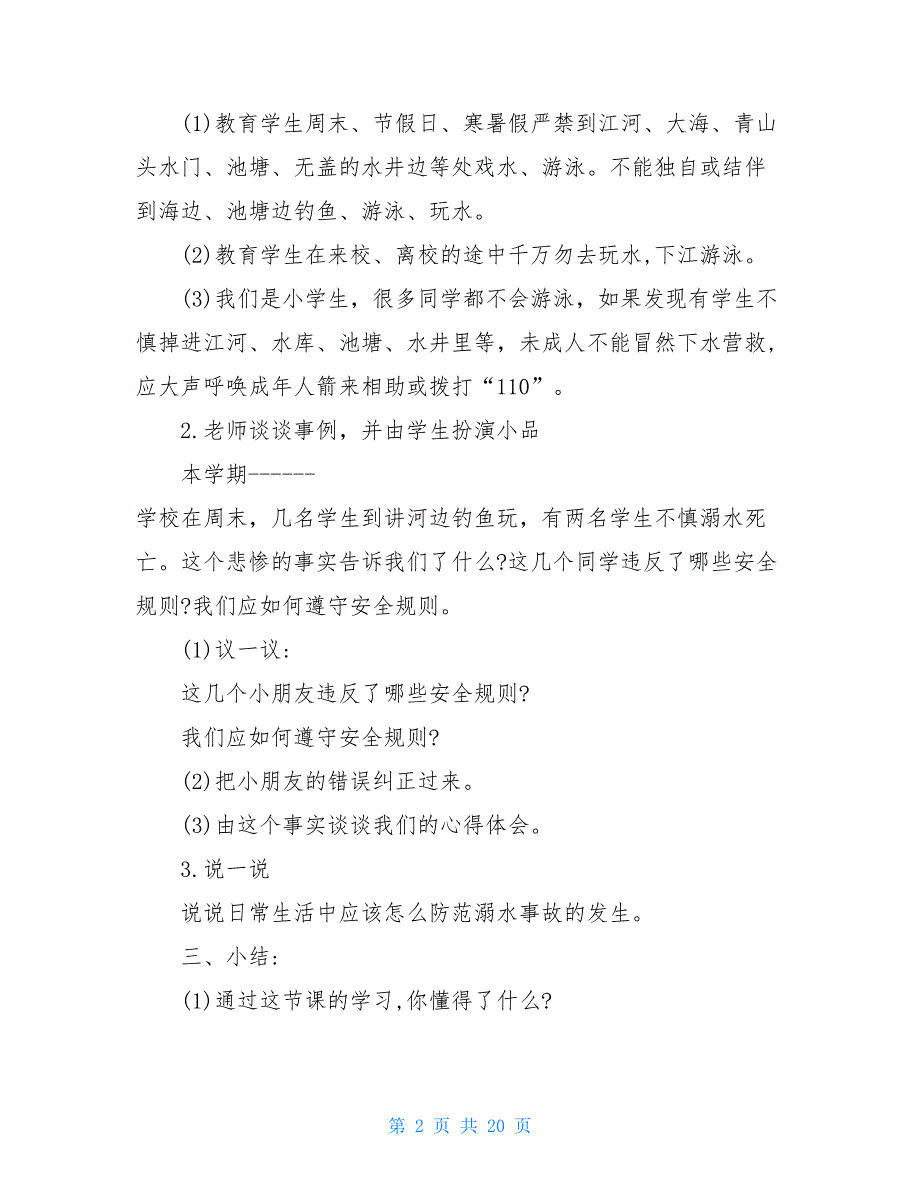 (1)教育学生周末、节假日、寒暑假严禁到江河、大海、青山
头水门、池塘、无盖的水井边等处戏水、游泳。不能独自或结伴
到海边、池塘边钓鱼、游泳、玩水。
(2)教育学生在来校、离校的途中千万勿去玩水,下江游泳。
(3)我们是小学生，很多同学都不会游泳，如果发现有学生不
慎掉进江河、水库、池塘、水井里等，未成人不能冒然下水营救，
应大声呼唤成年人箭来相助或拨打“110”。
2.老师谈谈事例，并由学生扮演小品
本学期------
学校在周末，几名学生到讲河边钓鱼玩，有两名学生不慎溺水死
亡。这个悲惨的事实告诉我们了什么?这几个同学违反了哪些安全
规则?我们应如何遵守安全规则。
(1)议一议:
这几个小朋友违反了哪些安全规则?
我们应如何遵守安全规则?
(2)把小朋友的错误纠正过来。
(3)由这个事实谈谈我们的心得体会。
3.说一说
说说日常生活中应该怎么防范溺水事故的发生。
三、小结:
(1)通过这节课的学习,你懂得了什么?
第 2 页 共 20 页